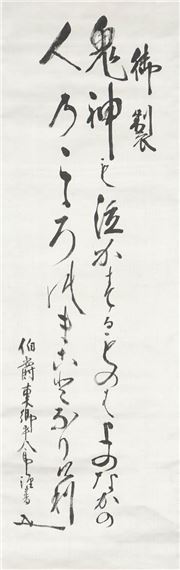 御製
鬼神も泣かするものはよのなかの
人のこころのまことなりけり
伯爵東郷平八郎謹書